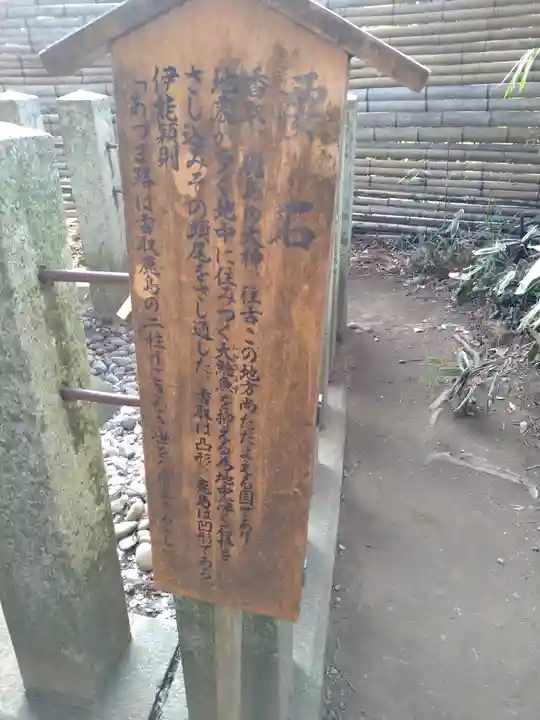 要石
香取、鹿島の大神、往古この地方尚ただよえる国であり
地震が多く地中に住みつく大鯰魚を抑える為地中深く石棒を
さし込みその頭尾をさし通した、香取は凸形、鹿島は凹形である
伊能穎則
「あづま路は香取鹿島の二柱